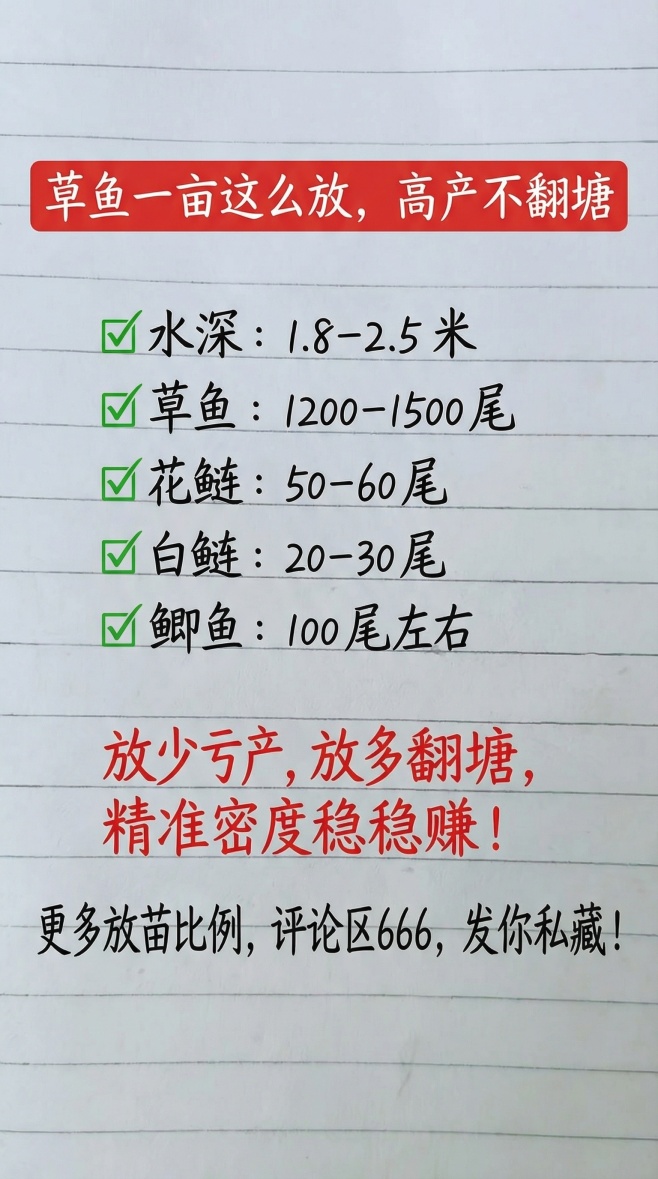 草鱼一亩这么放，高产不翻塘
水深：1.8-2.5米
草鱼：1200-1500尾
花鲢：50-60尾
白鲢：20-30尾
鲫鱼：100尾左右
放少亏产，放多翻塘，
精准密度稳稳赚！
更多放苗比例，评论区666，发你私藏！